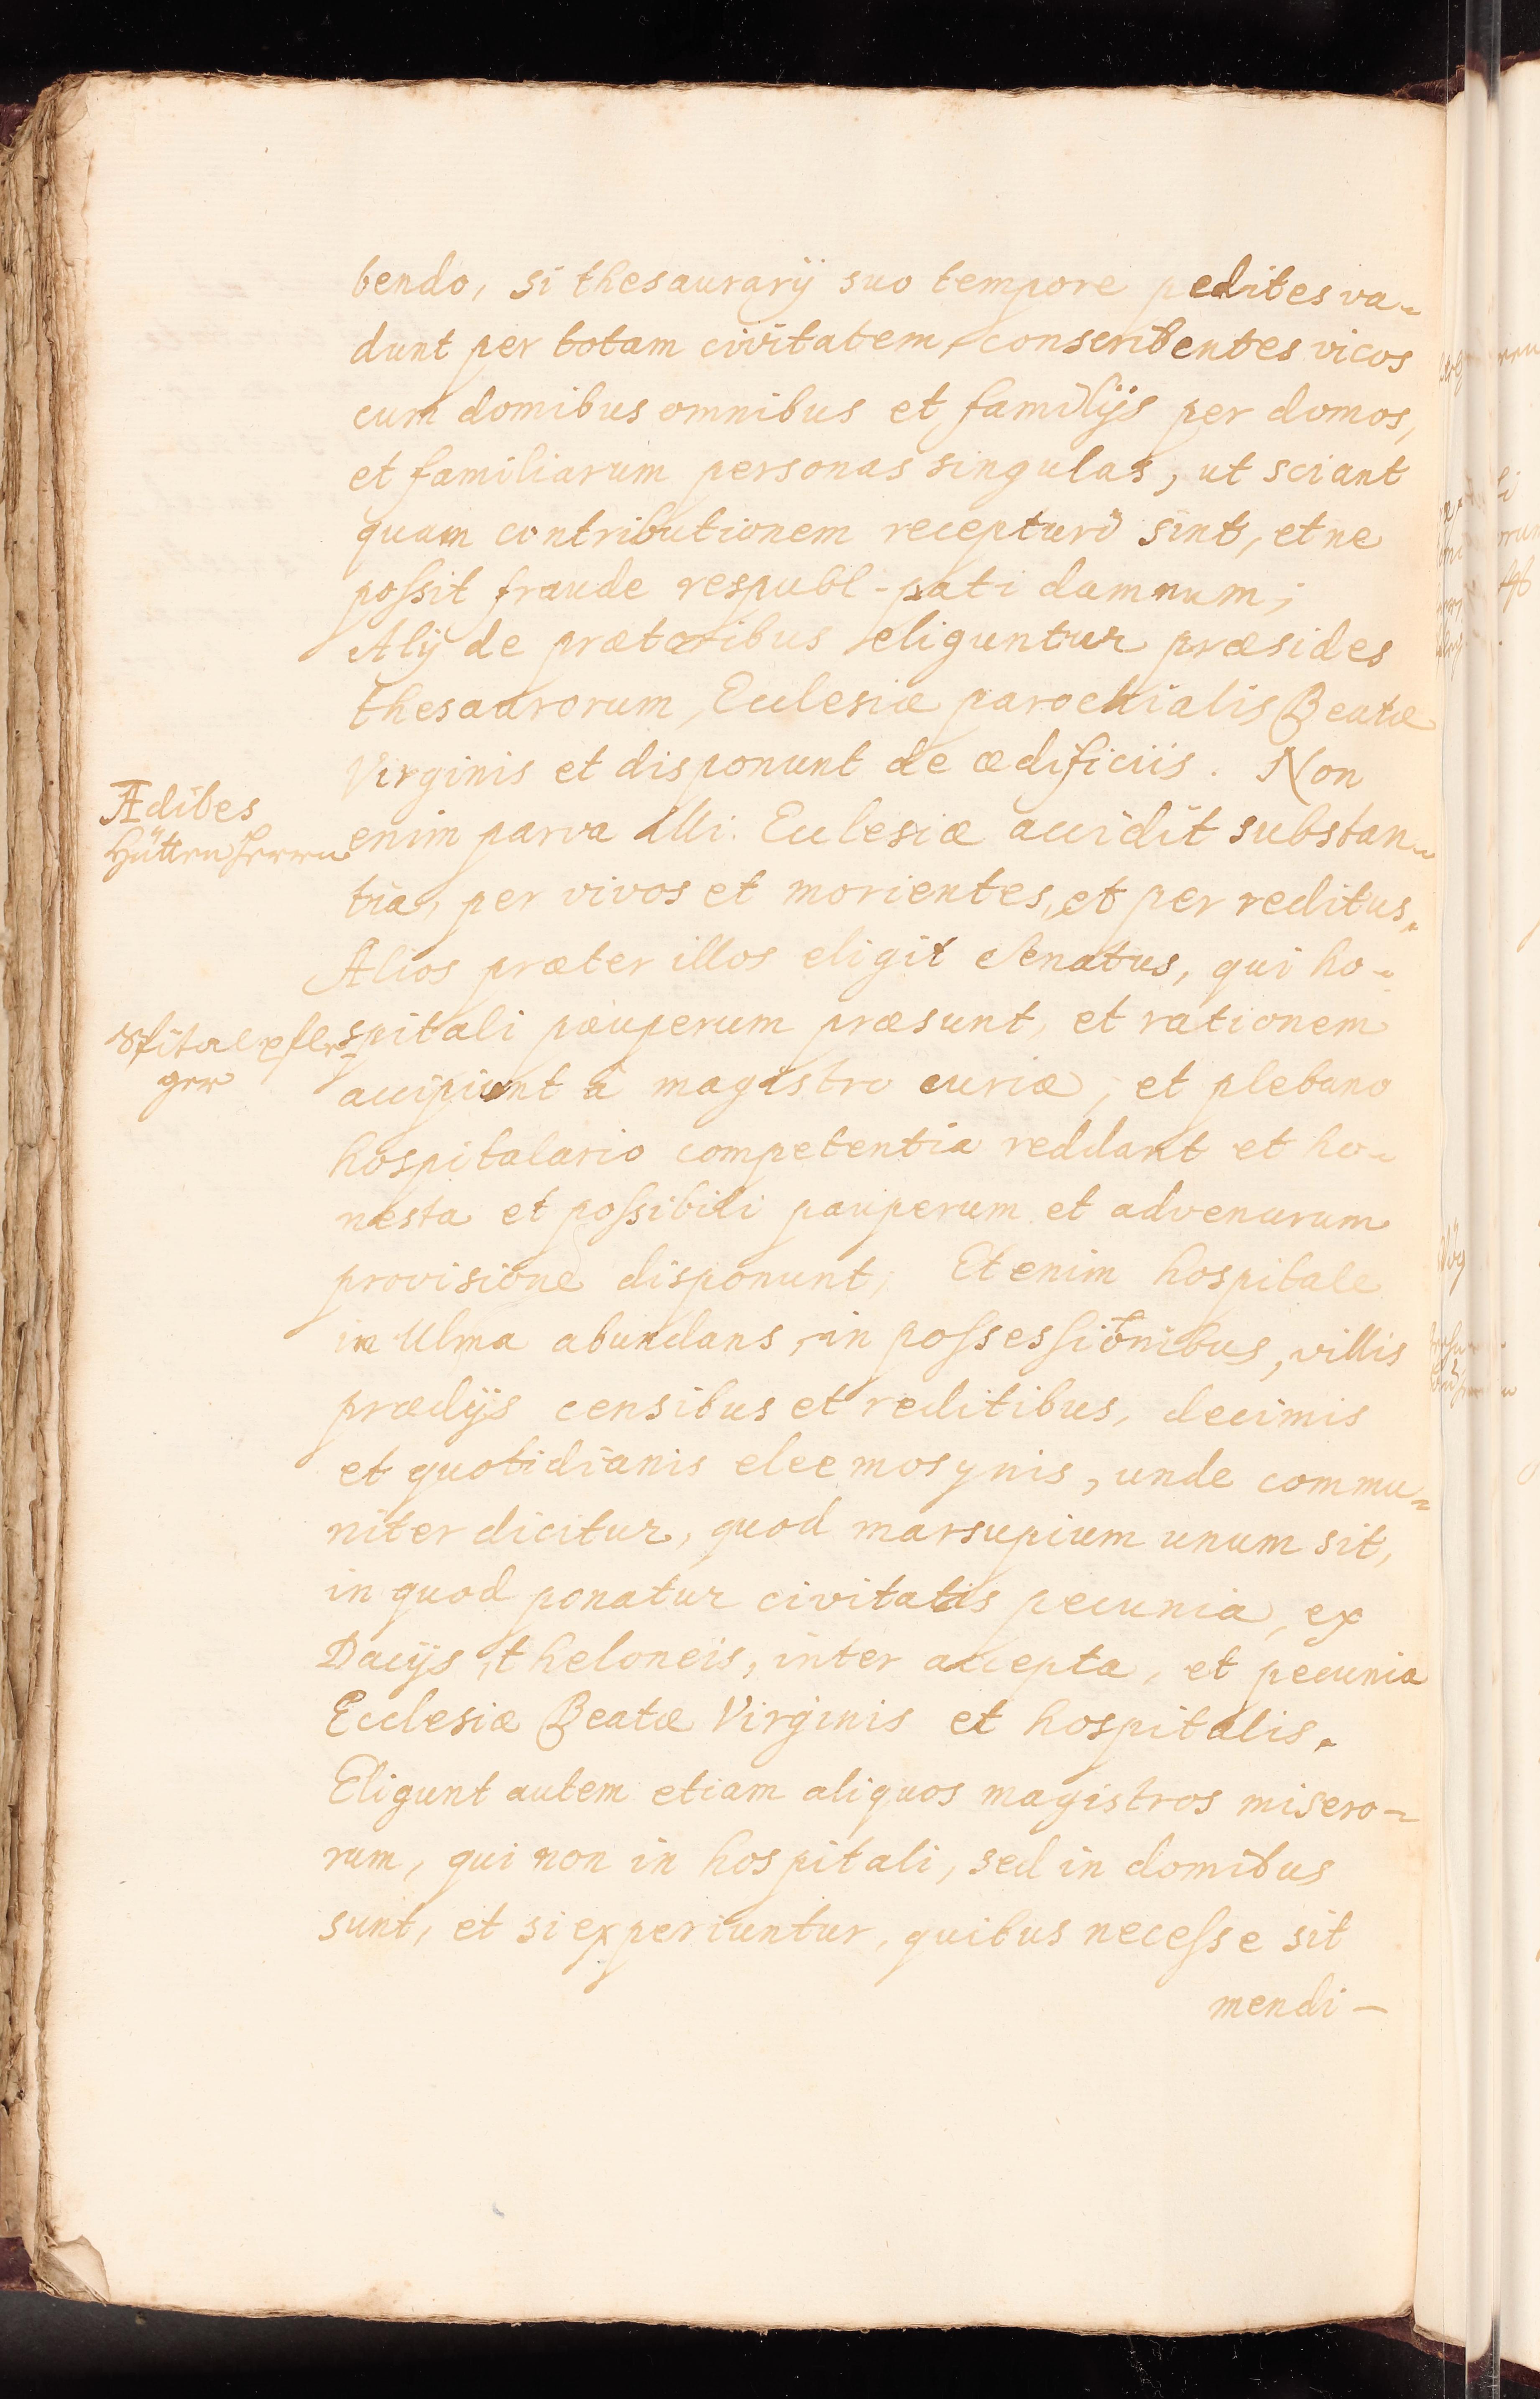 bendo, si thesaurarij suo tempore pedites va-
dunt per totam civitatem, conscribentes vicos
cum domibus omnibus et familijs per domos,
et familiarum personas singulas, ut sciant
quam contributionem recepturi sint, et ne
possit fraude respubl- pati damnum;
Alij de prætoribus eliguntur præsides
thesaurorum, Ecclesiæ parochialis Beatæ
Virginis et disponunt de ædificiis. Non
Ædibes
Hüttenherrn
enim parva illi Ecclesiæ accidit substan-
tia, per vivos et morientes, et per reditus.
Alios præter illos eligit Senatus, qui ho-
Spitalpfle-
ger
spitali pauperum præsunt, et rationem
accipiunt à magistro curiæ, et plebano
hospitalario competentia reddant et ho-
nesta et possibili pauperum et advenarum
provisione disponunt; Etenim hospitale
in Ulma abundans, in possessionibus, villis
prædijs censibus et reditibus, decimis
et quotidianis eleemosynis, unde commu-
niter dicitur, quod marsupium unum sit,
in quod ponatur civitatis pecunia, ex
Dacijs, theloneis, inter accepta, et pecunia
Ecclesiæ Beatæ Virginis et hospitalis.
Eligunt autem etiam aliquos magistros misero-
rum, qui non in hospitali, sed in domibus
sunt, et si experiuntur, quibus necesse sit
mendi-